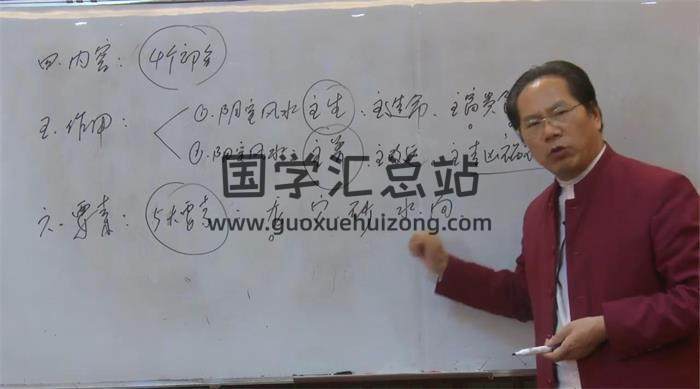 四. 内容: 4个部分
五. 作用:
①. 阴宅风水 主生: 主生命、主富贵
②. 阳宅风水: 主养: 主 主吉凶祸
国学汇总站
六. 要素: 5大要素: 龙 穴 砂 水 向
www.guoxuehuizong.com